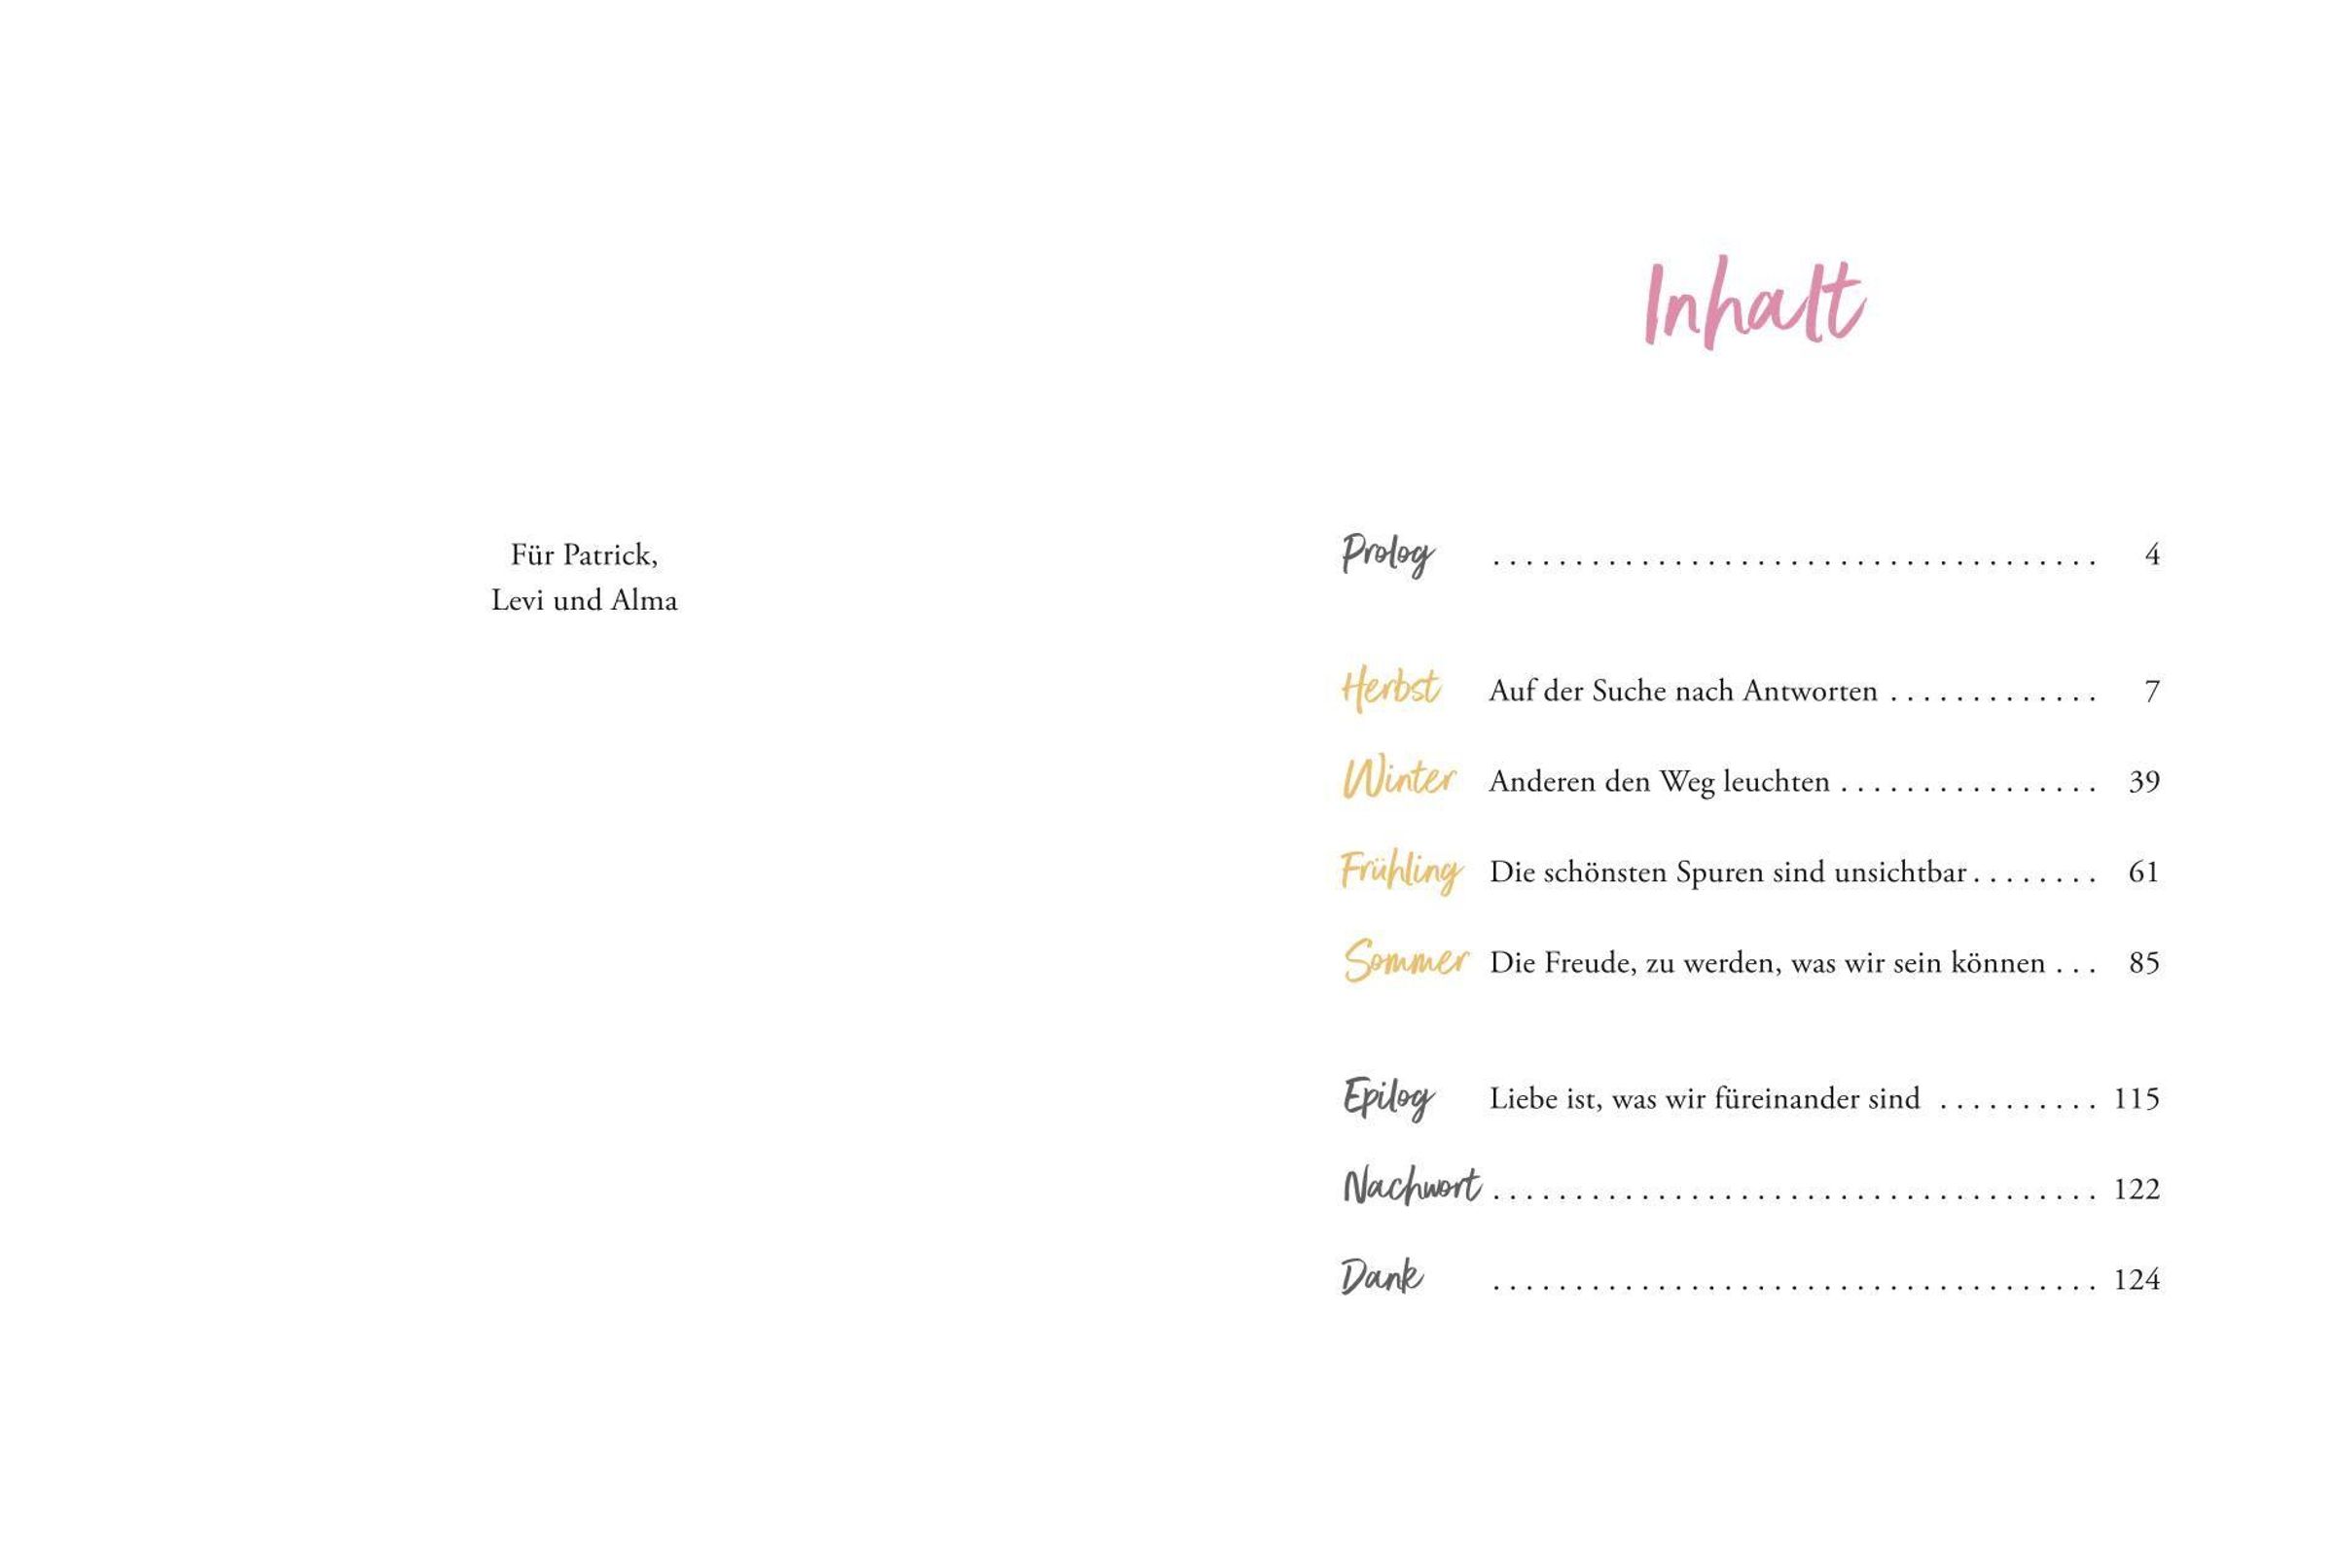 Für Patrick,
Levi und Alma
Inhalt
Prolog . . . . . . . . . . . . . . . . . . . . . . . . . . . . . . . . . . . . . 4
Herbst Auf der Suche nach Antworten . . . . . . . . . . . . . 7
Winter Anderen den Weg leuchten . . . . . . . . . . . . . . . . 39
Frühling Die schönsten Spuren sind unsichtbar . . . . . . . . 61
Sommer Die Freude, zu werden, was wir sein können . . . 85
Epilog Liebe ist, was wir füreinander sind . . . . . . . . . . 115
Nachwort . . . . . . . . . . . . . . . . . . . . . . . . . . . . . . . . . . . . . 122
Dank . . . . . . . . . . . . . . . . . . . . . . . . . . . . . . . . . . . . . 124